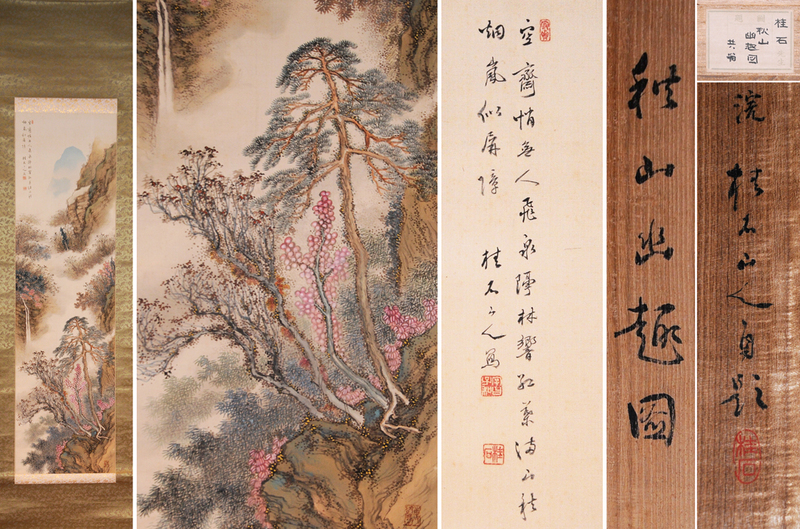 空齋悄無人飛泉隔林響紅葉滿秋
烟嵐似屏障
桂石山人寫
秋山幽趣圖
桂石
秋山
幽趣図
共箱
浣桂石山人自題